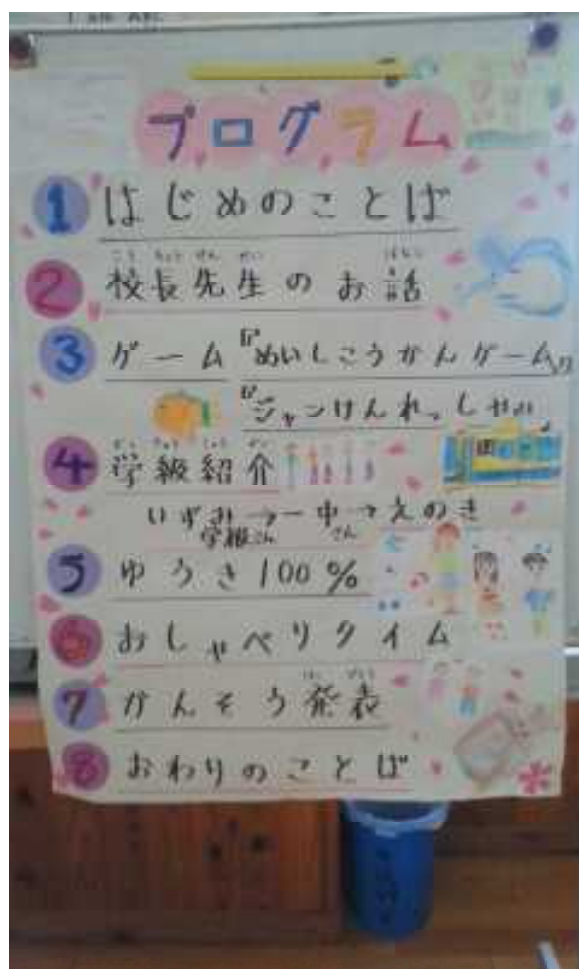 プログラム
1 はじめのことば
2 校長先生のお話
3 ゲーム 『めいしこうかんゲーム』
『ジャンけんれっしゃ』
4 学級紹介
いずみ学級さん→一中さん→えのき
5 ゆうき100%
6 おしゃべりタイム
7 かんそう発表
8 おわりのことば